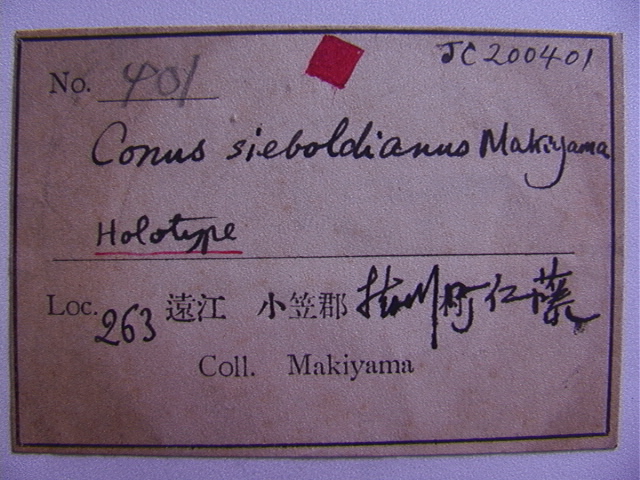 JC200401
No. 401
Conus sieboldianus Makiyama
Holotype
Loc. 263 遠江 小笠郡 掛川町仁藤
Coll. Makiyama